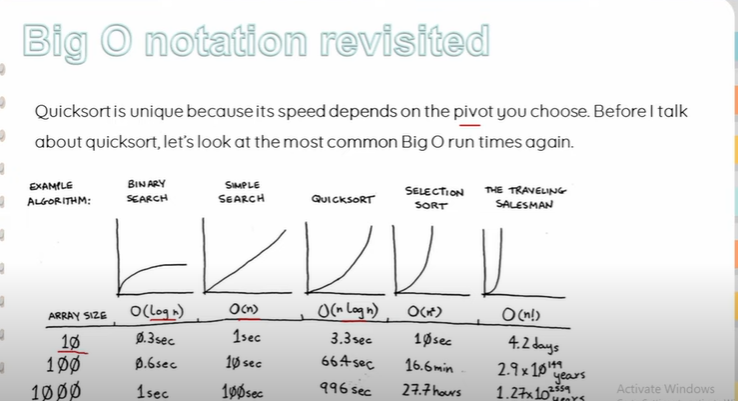 Big O notation revisited
Quicksort is unique because its speed depends on the pivot you choose. Before I talk
about quicksort, let's look at the most common Big O run times again.
EXAMPLE ALGORITHM: BINARY SEARCH SIMPLE SEARCH QUICKSORT SELECTION SORT THE TRAVELING SALESMAN
ARRAY SIZE O(log n) O(n) O(n log n) O(n²) O(n!)
10 0.3sec 1sec 3.3sec 10sec 4.2 days
100 0.6sec 10sec 664sec 16.6min 2.9 x 10¹⁴⁹ years
1000 1sec 100sec 996 sec 27.7 hours 1.27x10²⁵⁵⁹ years
Activate Windows